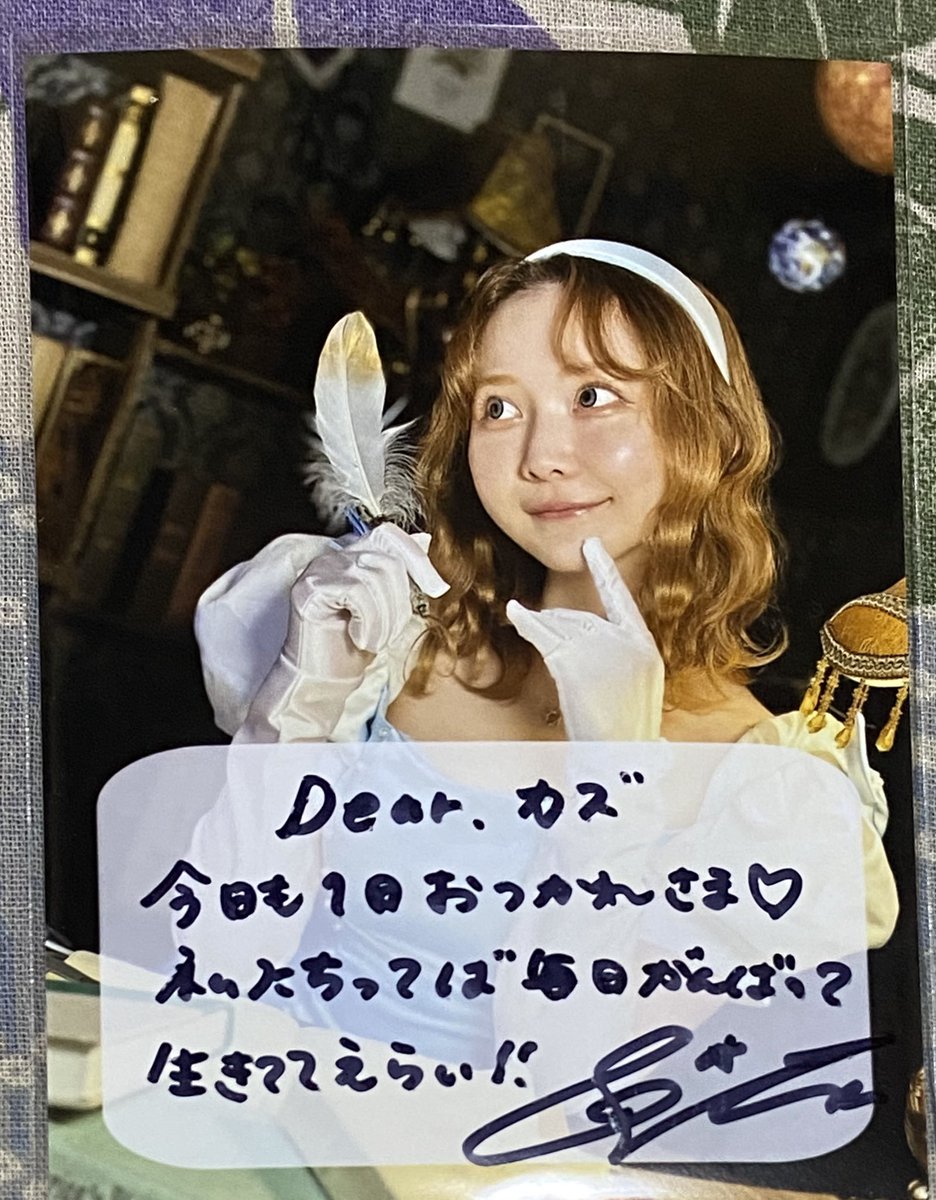 Dear. カズ
今日も1日おつかれさま♡
私たちってば毎日がんばって
生きててえらい!!